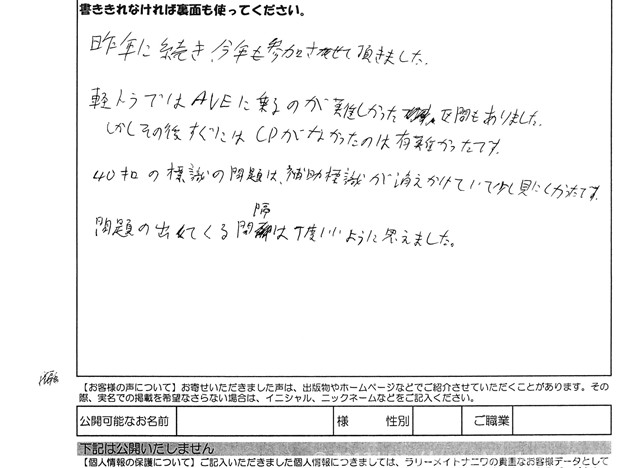 書ききれなければ裏面も使ってください。
昨年に続き、今年も参加させて頂きました。
軽トラではAVEに乗るのが難しかった区間もありました。
しかしその後すぐにはCPがなかったのは有難かったです。
40キロの標識の問題は、補助標識が消えかけていて少し見にくかったです。
問題の出てくる間隔は丁度いいように思えました。
【お客様の声について】お寄せいただきました声は、出版物やホームページなどでご紹介させていただくことがあります。その
際、実名での掲載を希望なさらない場合は、イニシャル、ニックネームなどをご記入ください。
公開可能なお名前 様 性別 ご職業
下記は公開いたしません
【個人情報の保護について】ご記入いただきました個人情報につきましては、ラリーメイトナニワの貴重なお客様データとして